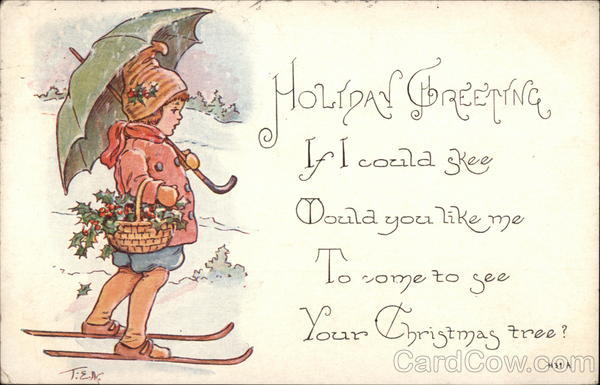 Holiday Greeting
If I could skee
Would you like me
To come to see
Your Christmas tree?
T.E.N.
H31A
CardCow.com